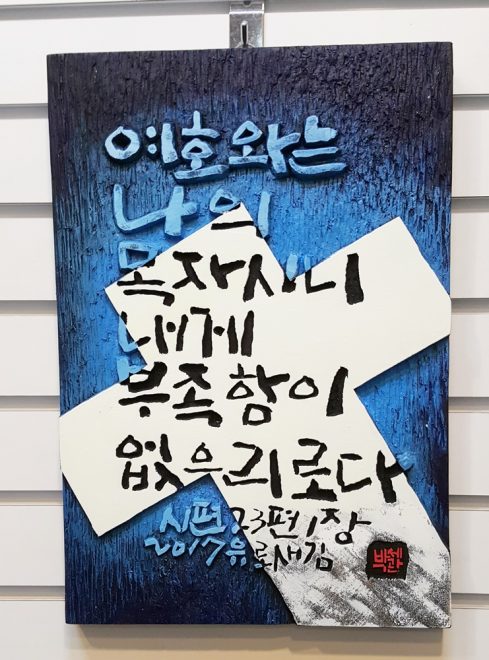 여호와는
나의
목자시니
내게
부족함이
없으리로다
시편 23편 1장
2017 유로새김